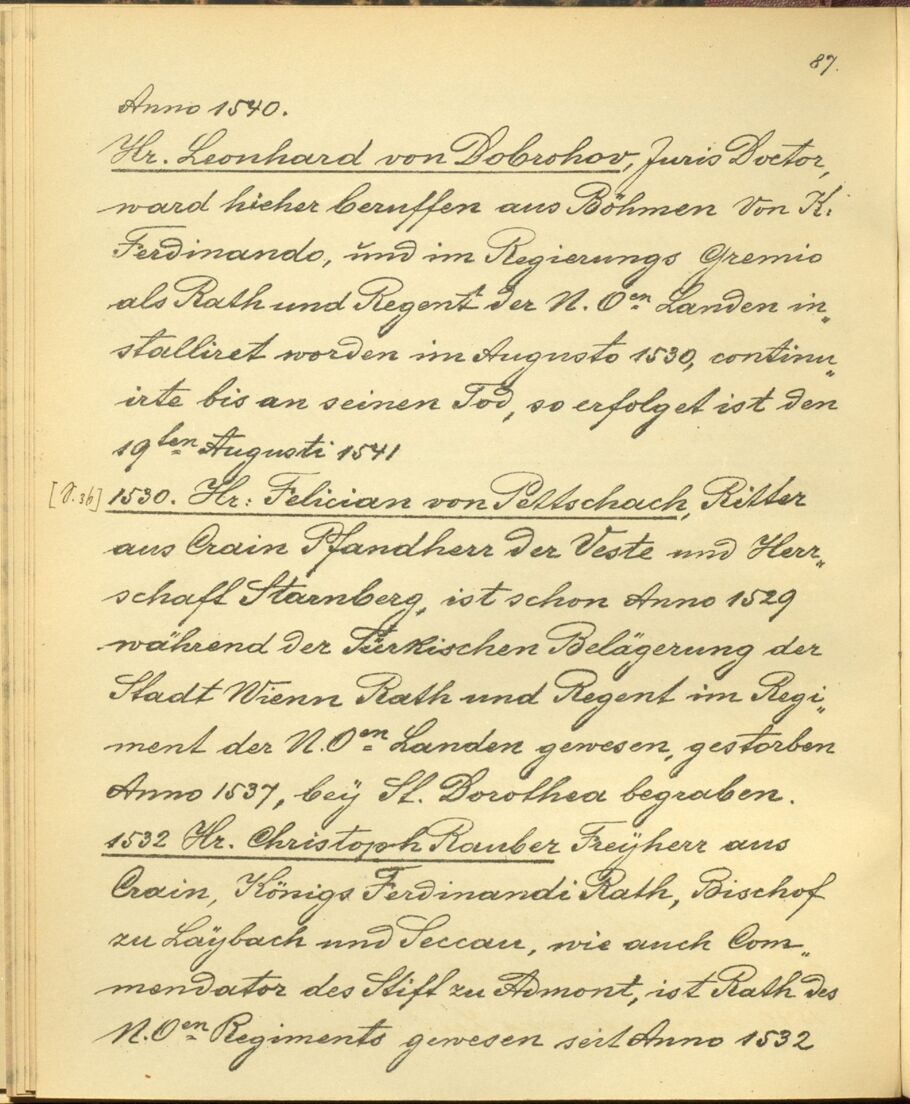 87.
Anno 1540.
Hr. Leonhard von Dobrohov, Juris Doctor,
ward hieher beruffen aus Böhmen von K:
Ferdinando, und im Regierungs Gremio
als Rath und Regent der N. Oen Landen in„
stalliret worden im Augusto 1530, continu„
irte bis an seinen Tod, so erfolget ist den
19ten Augusti 1541
1530. Hr: Felician von Pettschach, Ritter
aus Crain Pfandherr der Veste und Herr„
schaft Starnberg, ist schon Anno 1529
während der Türkischen Belägerung der
Stadt Wienn Rath und Regent im Regi„
ment der N. Oen Landen gewesen, gestorben
Anno 1537, beÿ St. Dorothea begraben.
1532 Hr. Christoph Rauber Freÿherr aus
Crain, Königs Ferdinandi Rath, Bischof
zu Laÿbach und Seccau, wie auch Com„
mendator des Stift zu Admont, ist Rath des
N. Oen Regiments gewesen seit Anno 1532